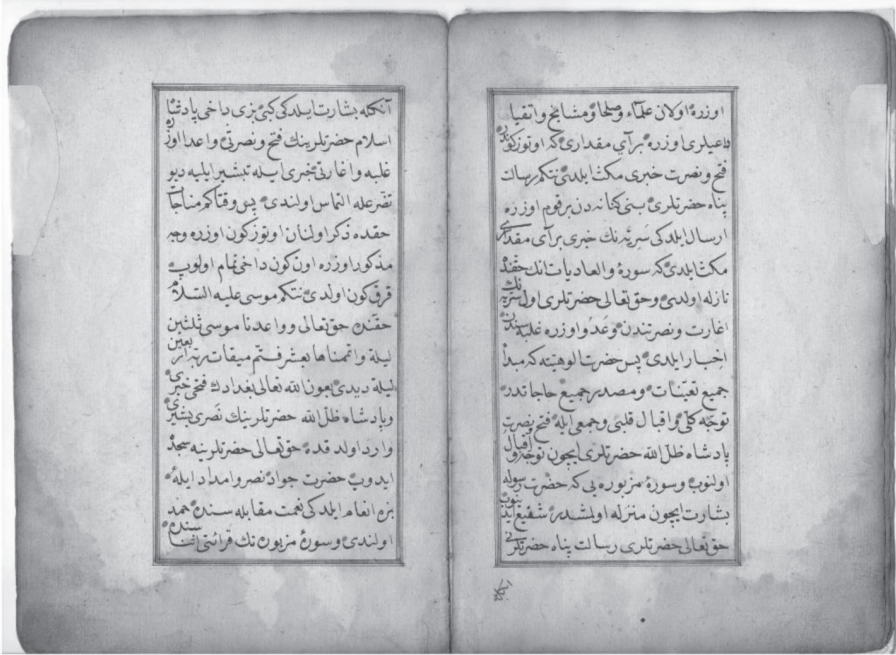 اوزره اولان علماء وصلحا ومشايخ واتقيا
داعيلرى اوزره برآى مقدارى كه اوتوز كوندر
فتح ونصرت خبرى مكث ايلدى نتكم رسالت
پناه حضرتلرى بنى كنانه دن بر قوم اوزره
ارسال ايلدكى سريه نك خبرى برآى مقدارى
مكث ايلدى كه سورهٔ والعاديات انك حقنده
نازله اولدى وحق تعالى حضرتلرى اول سريه نك
اغارت ونصرتندن وعدو اوزره غلبه سندن
اخبار ايلدى پس حضرت الوهيته كه مبدأ
جميع تعينات ومصدر جميع حاجاتدر
توجه كلى واقبال قلبى وجمعى ايله فتح ونصرت
پادشاه ظل الله حضرتلرى ايچون توجه واقبال
اولنوب وسورهٔ مزبوره يى كه حضرت رسوله
بشارت ايچون منزله اولمشدر شفيع ايدينوب
حق تعالى حضرتلرى رسالت پناه حضرتلرنى
آنكله بشارت ايلدكى كبى بزى داخى پادشاه
اسلام حضرتلرينك فتح ونصرتى واعدا اوزره
غلبه واغارتى خبرى ايله تبشير ايليه ديو
تضرعله التماس اولندى پس وقتاكم مناجات
حقده ذكر اولنان اوتوز كون اوزره وجه
مذكور اوزره اون كون داخى تمام اولوب
قرق كون اولدى نتكم موسى عليه السلام
حقنده حق تعالى وواعدنا موسى ثلثين
ليلة واتممناها بعشر فتم ميقات ربه اربعين
ليلة ديدى بعون الله تعالى بغدادك فتحى خبرى
وپادشاه ظل الله حضرتلرينك نصرى بشيرى
وارد اولدقده حق تعالى حضرتلرينه سجده
ايدوب حضرت جواد نصر وامداد ايله
بزه انعام ايلدكى نعمت مقابله سنده حمد
اولندى وسورهٔ مزبوره نك قرائتى اثناسنده